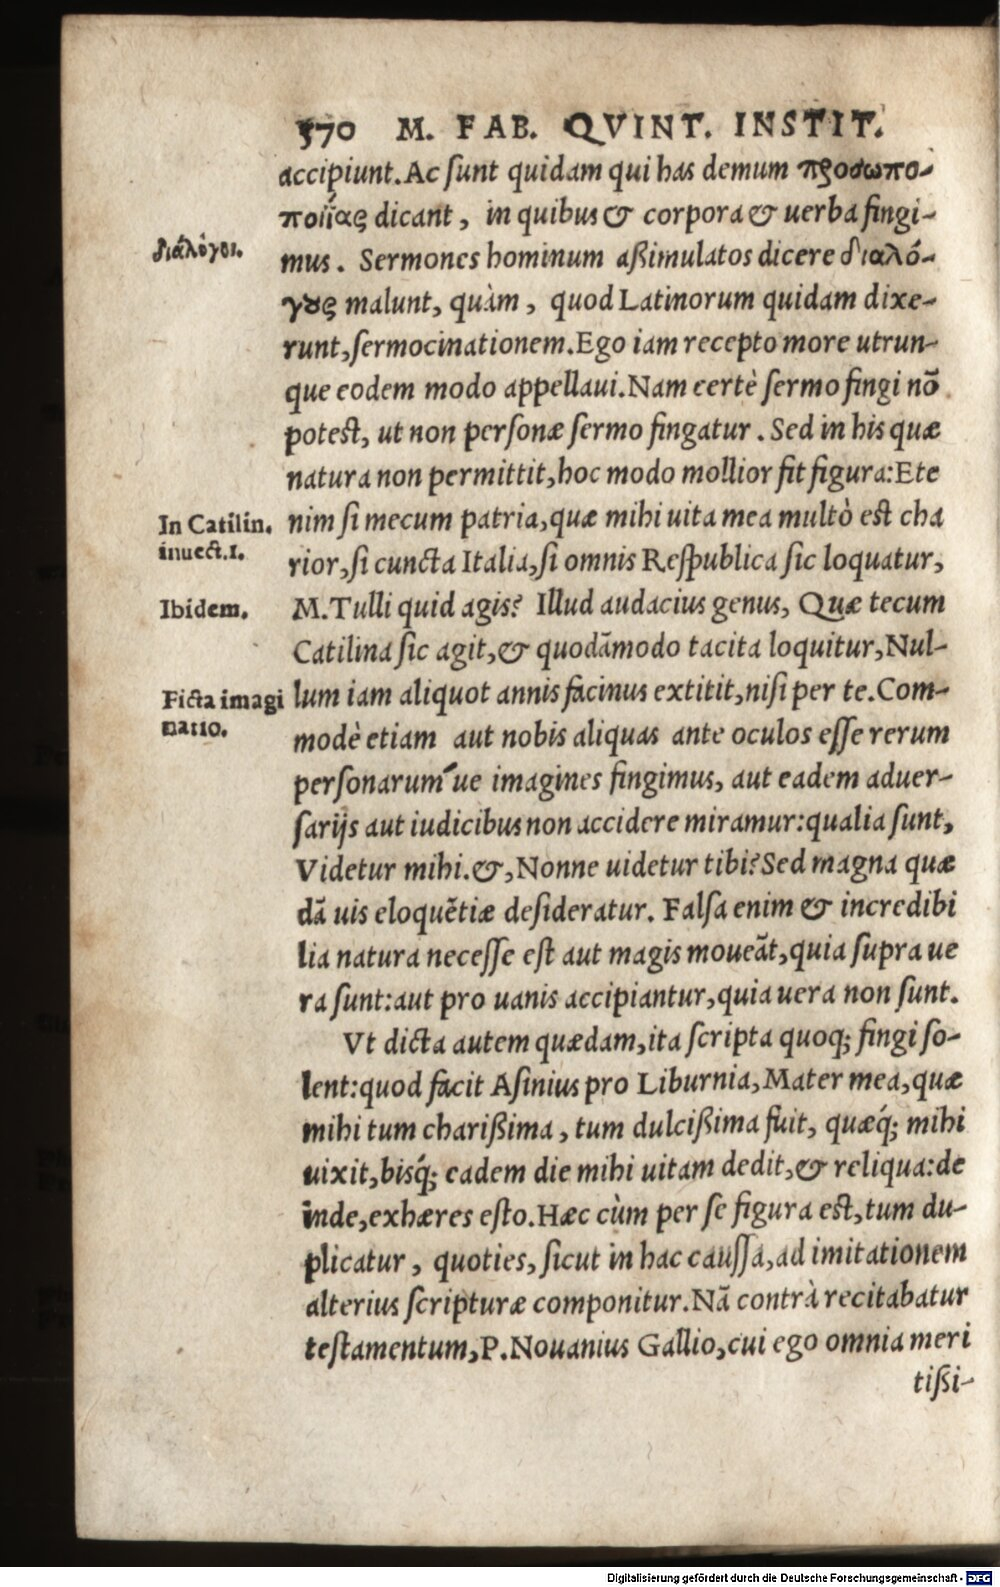 570 M. FAB. QVINT. INSTIT.
accipiunt. Ac ſunt quidam qui has demum προσωπο-
ποιΐας dicant, in quibus & corpora & uerba fingi-
διάλογοι.
mus. Sermones hominum aſsimulatos dicere διαλό-
γους malunt, quàm, quod Latinorum quidam dixe-
runt, ſermocinationem. Ego iam recepto more utrun-
que eodem modo appellaui. Nam certè ſermo fingi nō
poteſt, ut non perſonæ ſermo fingatur. Sed in his quæ
natura non permittit, hoc modo mollior fit figura: Ete
In Catilin.
inuect.1.
nim ſi mecum patria, quæ mihi uita mea multò eſt cha
rior, ſi cuncta Italia, ſi omnis Reſpublica ſic loquatur,
Ibidem.
M. Tulli quid agis? Illud audacius genus, Quæ tecum
Catilina ſic agit, & quodāmodo tacita loquitur, Nul-
Ficta imagi
natio.
lum iam aliquot annis facinus extitit, niſi per te. Com-
modè etiam aut nobis aliquas ante oculos eſſe rerum
perſonarum´ue imagines fingimus, aut eadem aduer-
ſarijs aut iudicibus non accidere miramur: qualia ſunt,
Videtur mihi. &, Nonne uidetur tibi? Sed magna quæ
dā uis eloquētiæ deſideratur. Falſa enim & incredibi
lia natura neceſſe eſt aut magis moueāt, quia ſupra ue
ra ſunt: aut pro uanis accipiantur, quia uera non ſunt.
Vt dicta autem quædam, ita ſcripta quoq; fingi ſo-
lent: quod facit Aſinius pro Liburnia, Mater mea, quæ
mihi tum chariſsima, tum dulciſsima fuit, quæq́; mihi
uixit, biśq; eadem die mihi uitam dedit, & reliqua: de
inde, exhæres eſto. Hæc cùm per ſe figura eſt, tum du-
plicatur, quoties, ſicut in hac cauſſa, ad imitationem
alterius ſcripturæ componitur. Nā contrà recitabatur
teſtamentum, P. Nouanius Gallio, cui ego omnia meri
tiſsi-
Digitalisierung gefördert durch die Deutsche Forschungsgemeinschaft - DFG